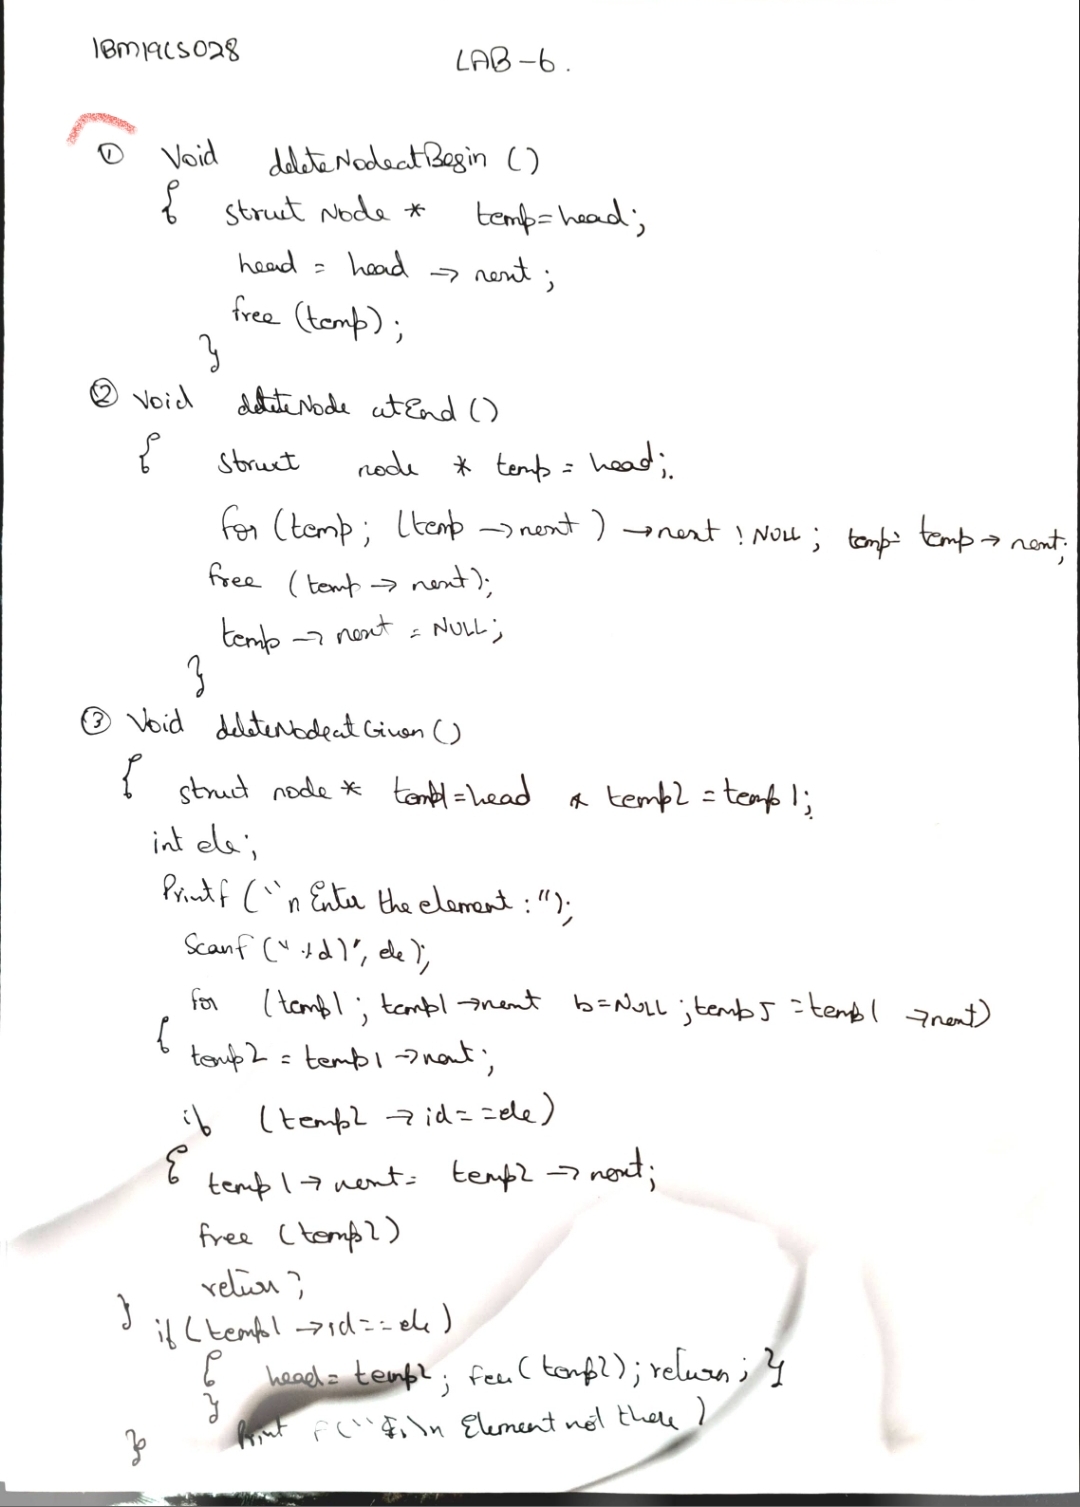 1BM19CS028
LAB-6.
① Void deleteNodeatBegin ()
{ struct Node * temp=head;
head = head → next ;
free (temp);
}
② Void deleteNode atEnd ()
{ struct node * temp = head;.
for (temp; (temp → next ) → next ! NULL ; temp= temp → next;
free ( temp → next);
temp → next = NULL;
}
③ Void deleteNodeatGiven ()
{ struct node * temp1=head * temp2 = temp1;
int ele;
Printf ("n Enter the element :");
Scanf ( ele );
for (temp1 ; temp1 → next b=NULL ; temp5 = temp1 → next)
{ temp2 = temp1 → next;
if (temp2 → id==ele)
{ temp1 → next= temp2 → next;
free (temp2)
return ;
} if (temp1 → id==ele )
{ head= temp2; free ( temp2); return ; }
} Print f (" \n Element not there )
}